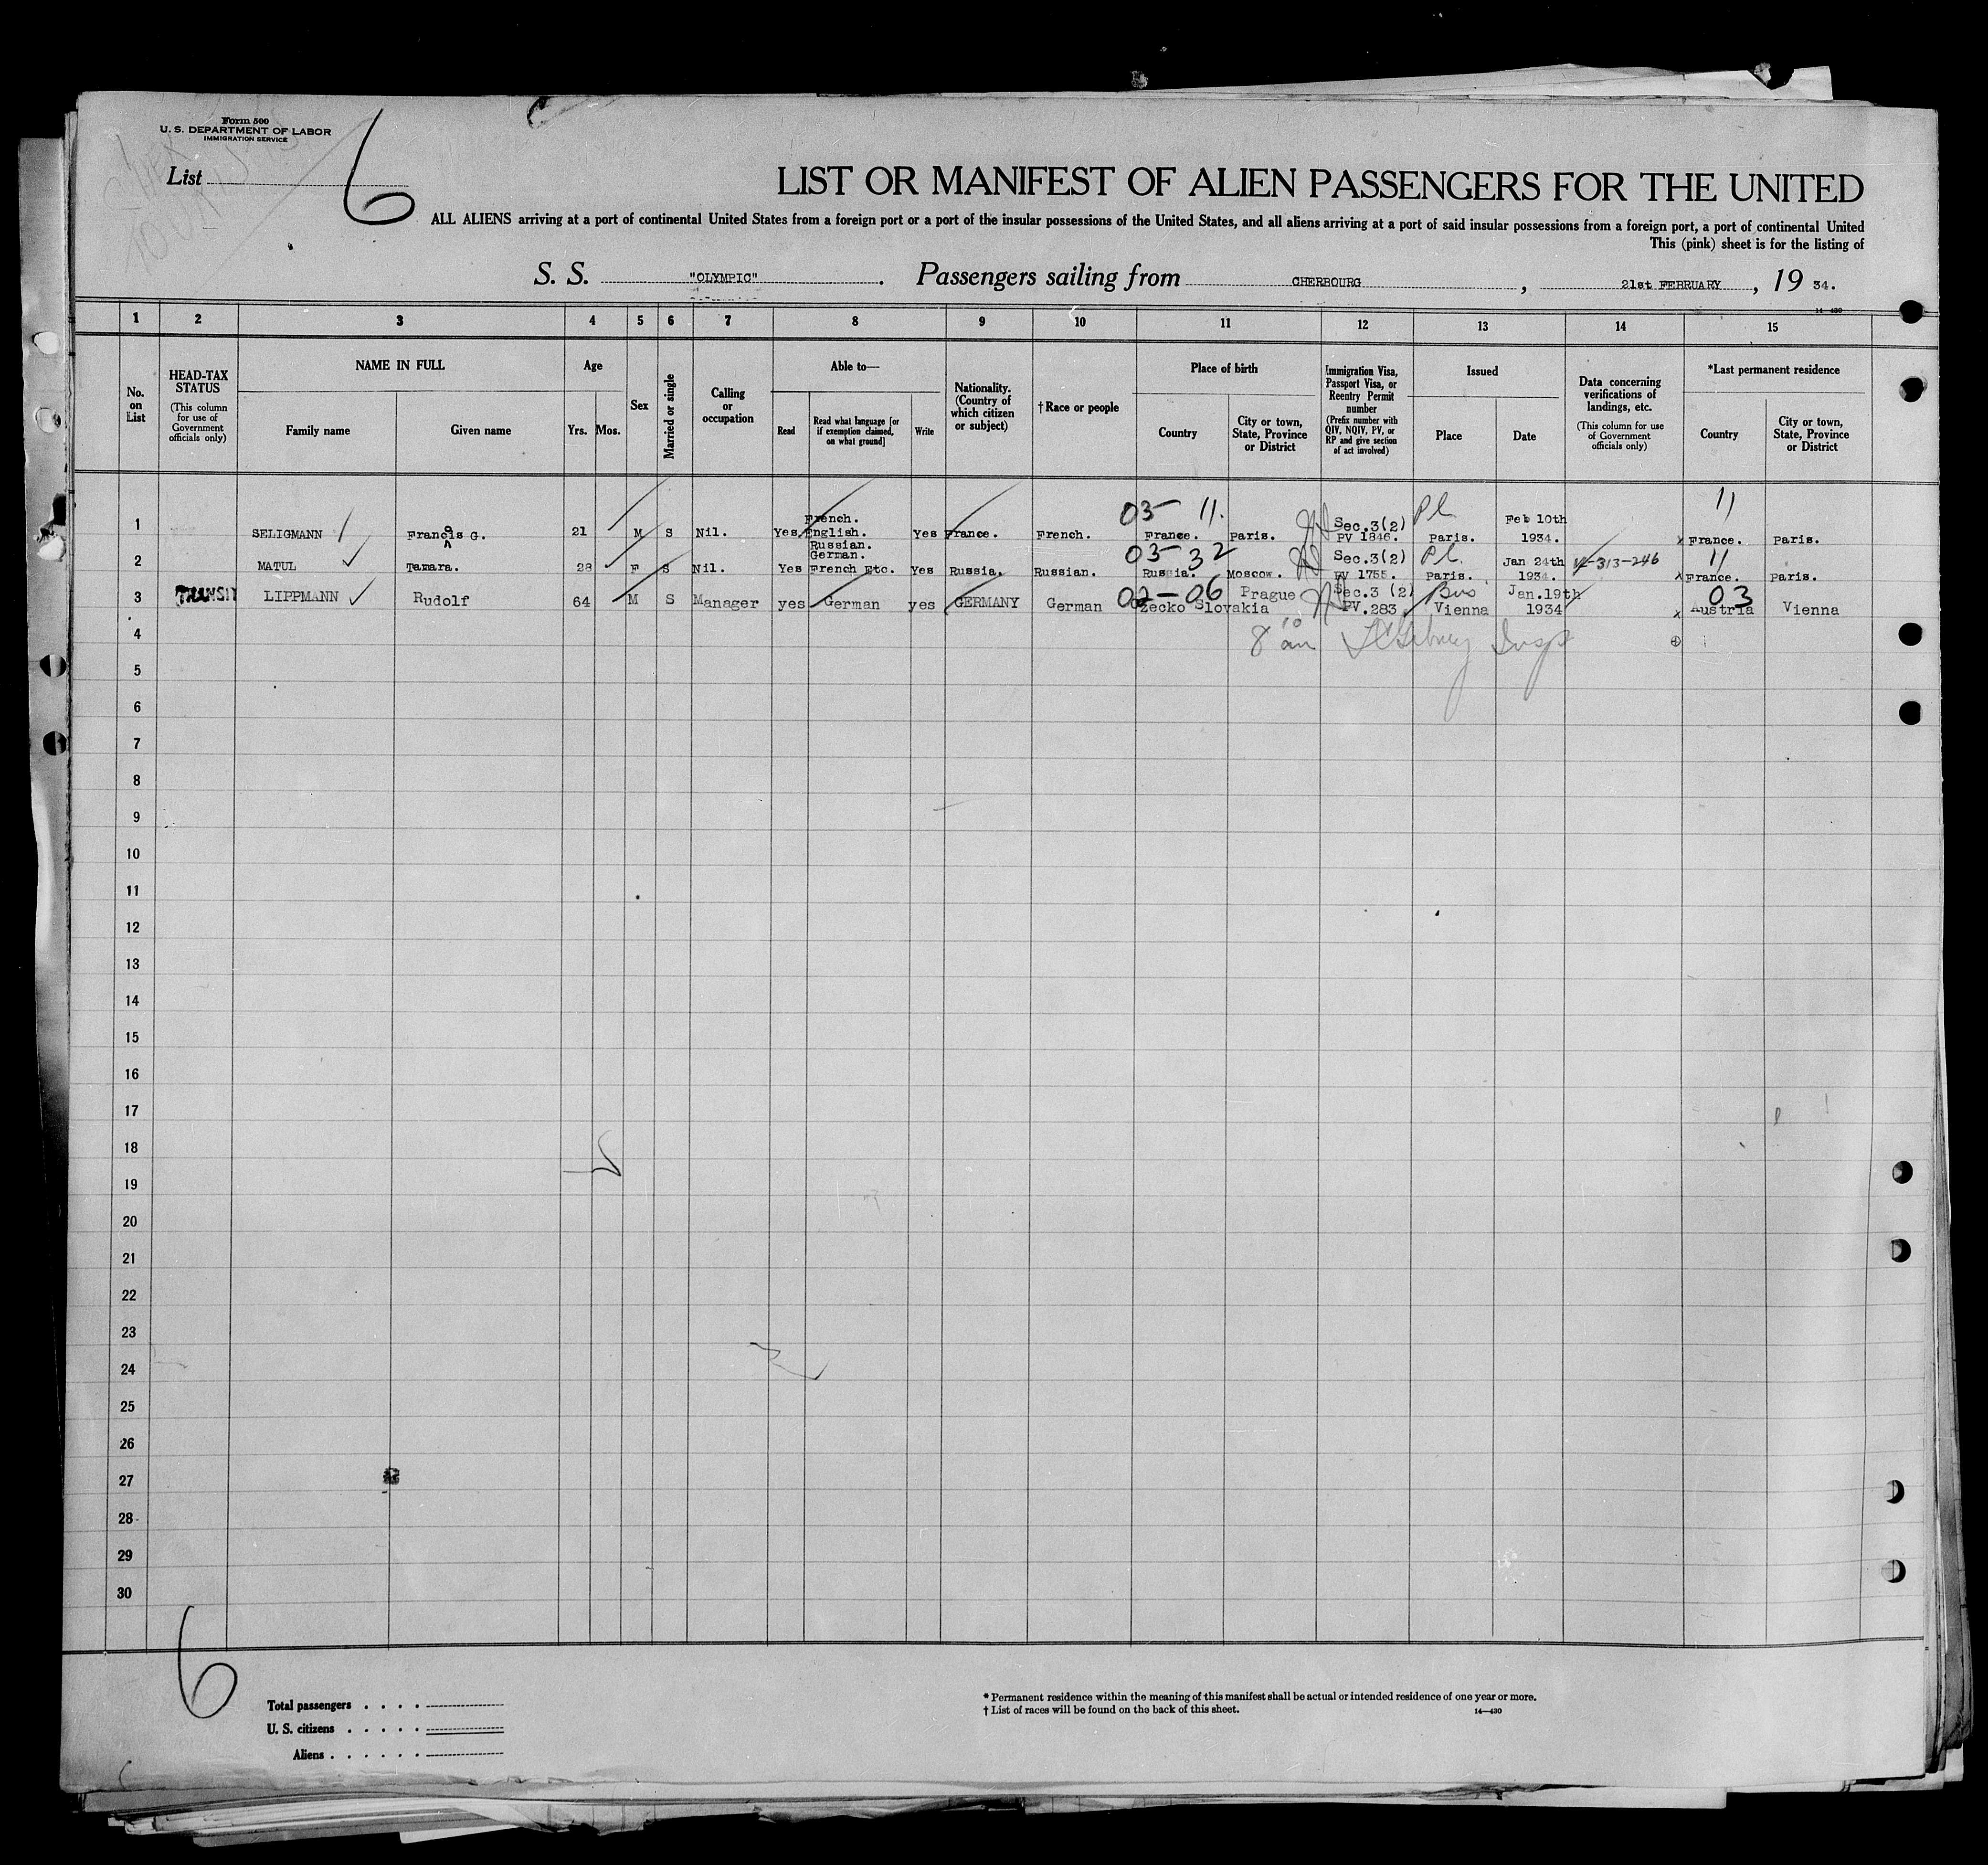 Form 500
U. S. DEPARTMENT OF LABOR
IMMIGRATION SERVICE
List 6
LIST OR MANIFEST OF ALIEN PASSENGERS FOR THE UNITED
ALL ALIENS arriving at a port of continental United States from a foreign port or a port of the insular possessions of the United States, and all aliens arriving at a port of said insular possessions from a foreign port, a port of continental United
This (pink) sheet is for the listing of
S. S. "OLYMPIC". Passengers sailing from CHERBOURG, 21st FEBRUARY, 19 34.
14—430
1 2 3 4 5 6 7 8 9 10 11 12 13 14 15
No. on List
HEAD-TAX STATUS
(This column for use of Government officials only)
NAME IN FULL
Family name
Given name
Age
Yrs. Mos.
Sex
Married or single
Calling or occupation
Able to—
Read
Read what language [or if exemption claimed, on what ground]
Write
Nationality. (Country of which citizen or subject)
† Race or people
Place of birth
Country
City or town, State, Province or District
Immigration Visa, Passport Visa, or Reentry Permit number
(Prefix number with QIV, NQIV, PV, or RP and give section of act involved)
Issued
Place
Date
Data concerning verifications of landings, etc.
(This column for use of Government officials only)
*Last permanent residence
Country
City or town, State, Province or District
03- 11. Pl 11
1 SELIGMANN Francis G. 21 M S Nil. Yes French. English. Yes France. French. France. Paris. Sec.3(2) PV 1846. Paris. Feb 10th 1934. x France. Paris.
03- 32 Pl. 11
2 MATUL Tamara. 28 F S Nil. Yes Russian. German. French Etc. Yes Russia. Russian. Russia. Moscow. Sec.3(2) PV 1755. Paris. Jan 24th 1934. 14-313-246 x France. Paris.
02-06 03
3 TRANSIT LIPPMANN Rudolf 64 M S Manager yes German yes GERMANY German Czecko Slovakia Prague Sec.3 (2) PV.283 Vienna Jan.19th 1934 x Austria Vienna
4
5
6
7
8
9
10
11
12
13
14
15
16
17
18
19
20
21
22
23
24
25
26
27
28
29
30
6
Total passengers . . . .
U. S. citizens . . . . .
Aliens . . . . . .
* Permanent residence within the meaning of this manifest shall be actual or intended residence of one year or more.
† List of races will be found on the back of this sheet.
14—430